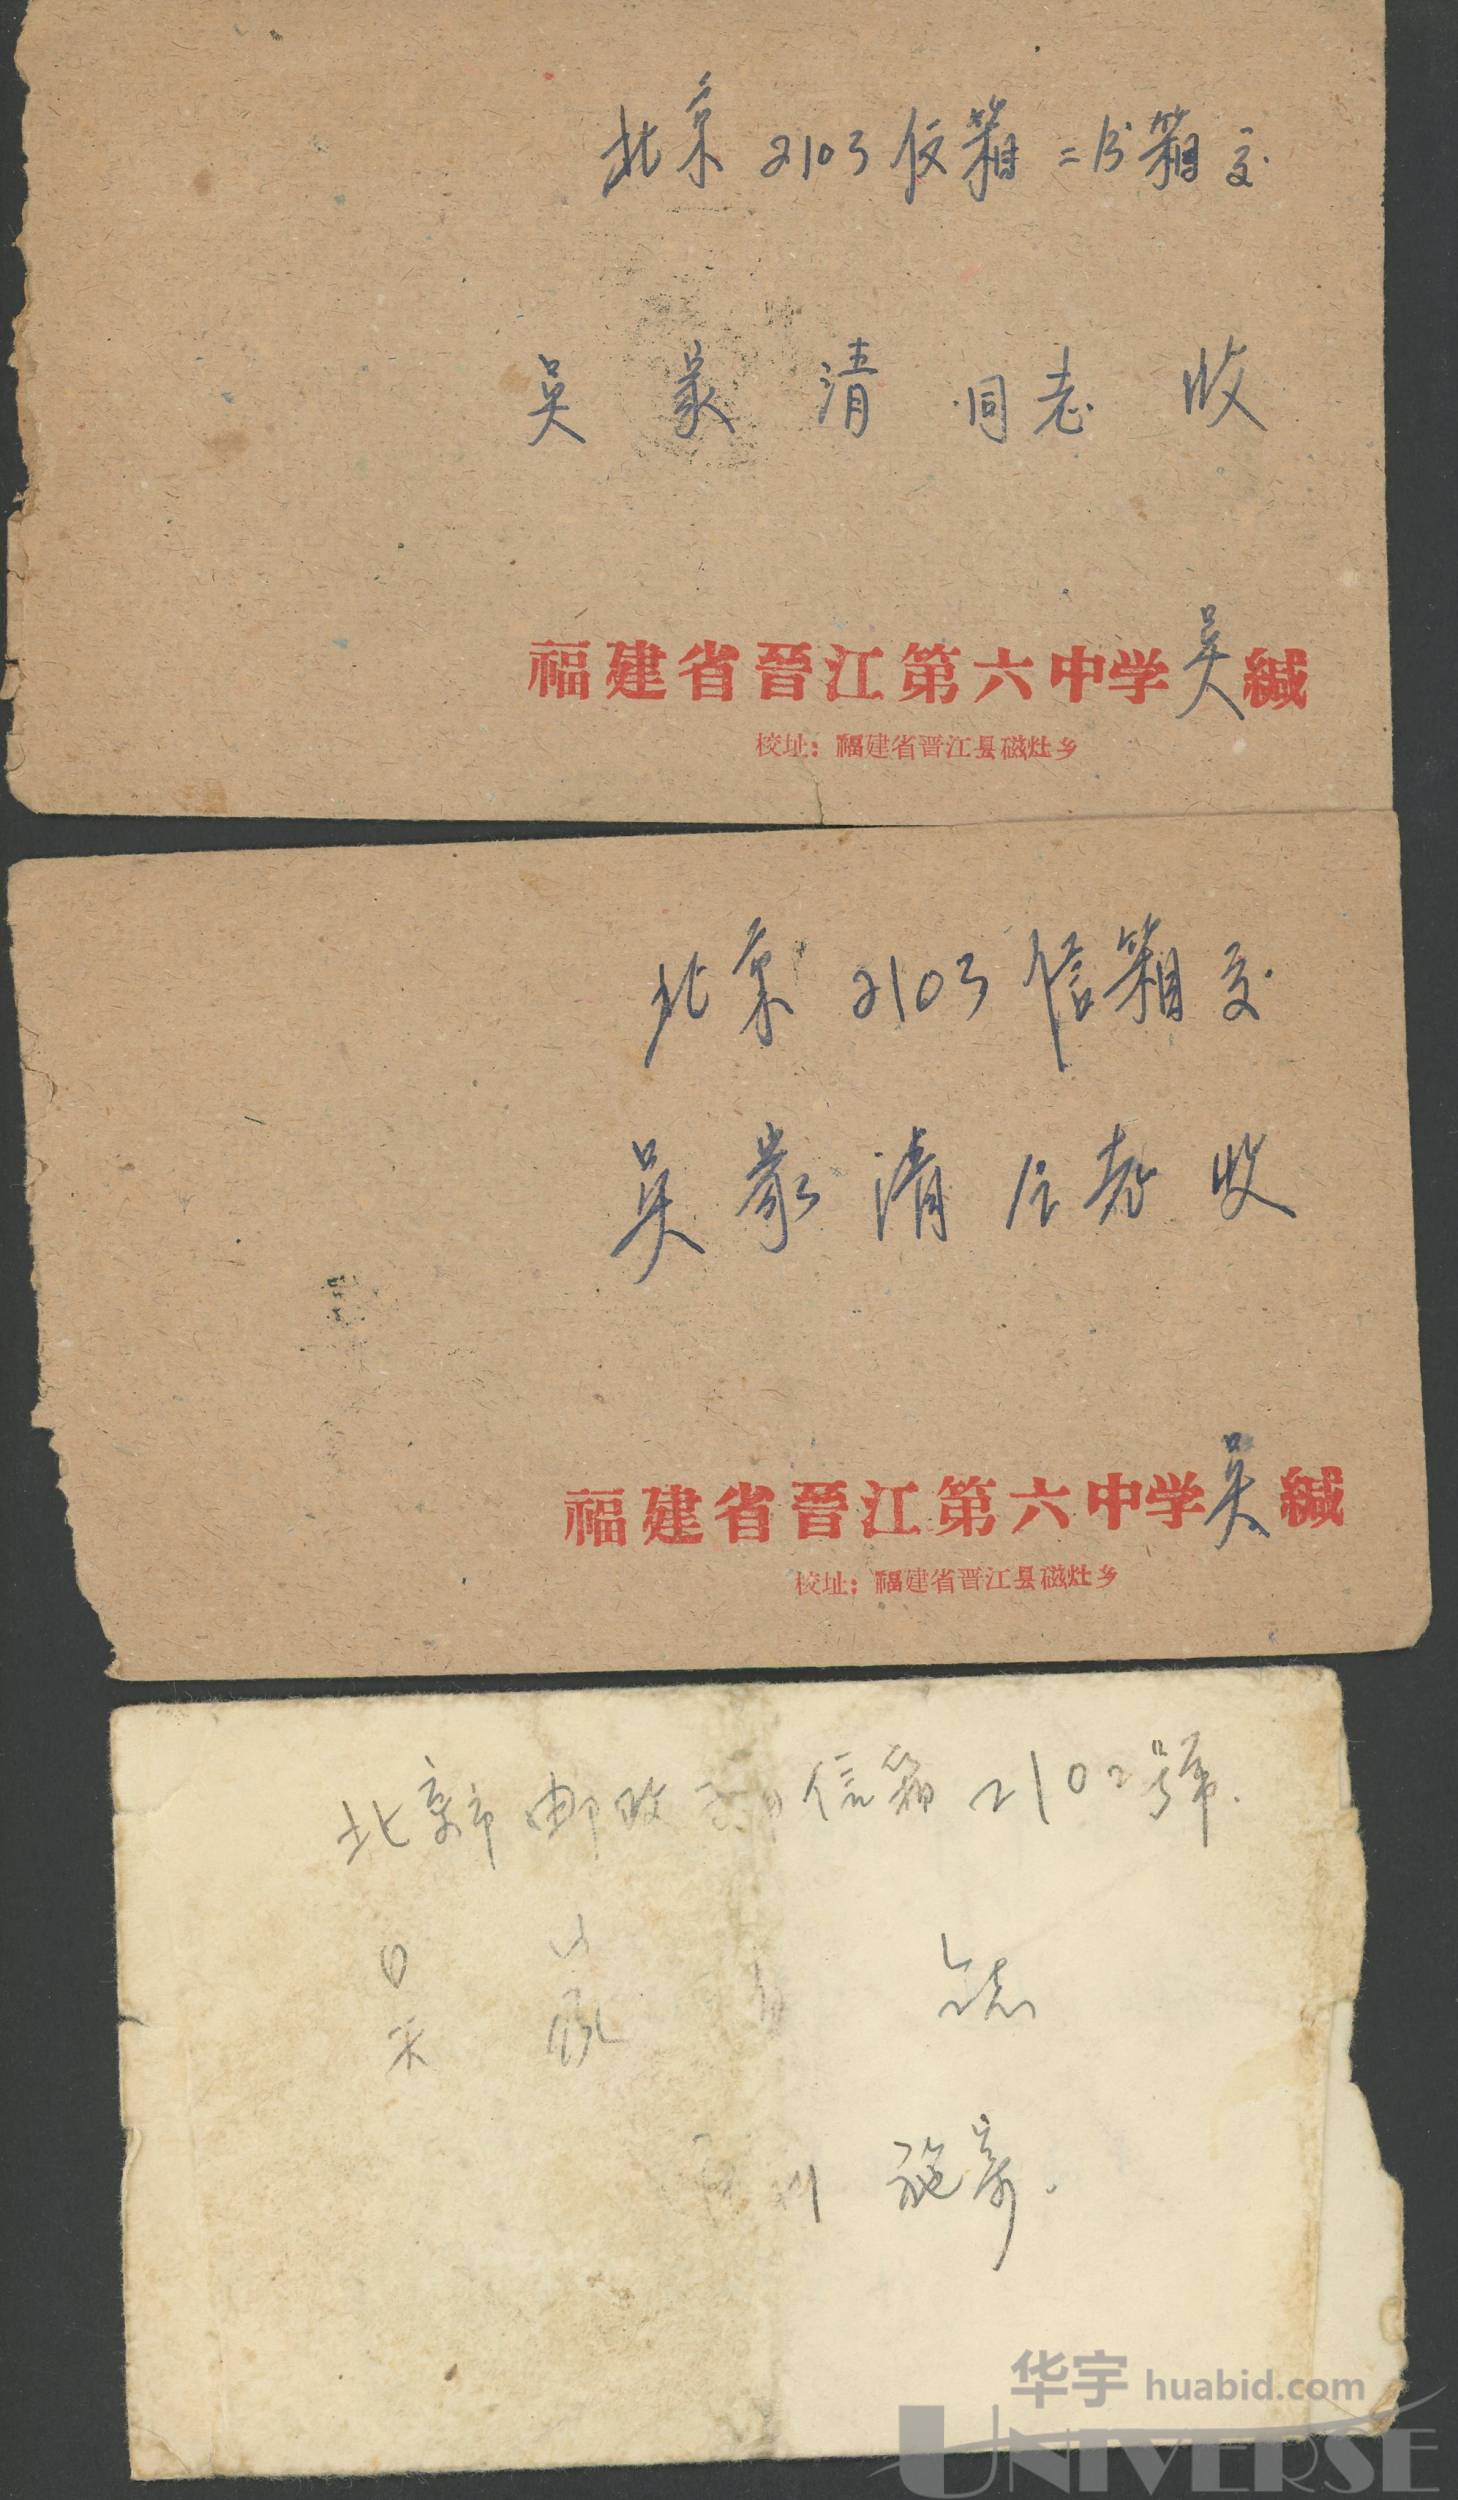 北京2103信箱二分箱交
吴家清同志收
福建省晋江第六中学吴缄
校址：福建省晋江县磁灶乡
北京2103信箱交
吴家清同志收
福建省晋江第六中学吴缄
校址：福建省晋江县磁灶乡
北京市邮政 信箱2102號.
吴家 志
施寄.
华宇 huabid.com
UNIVERSE